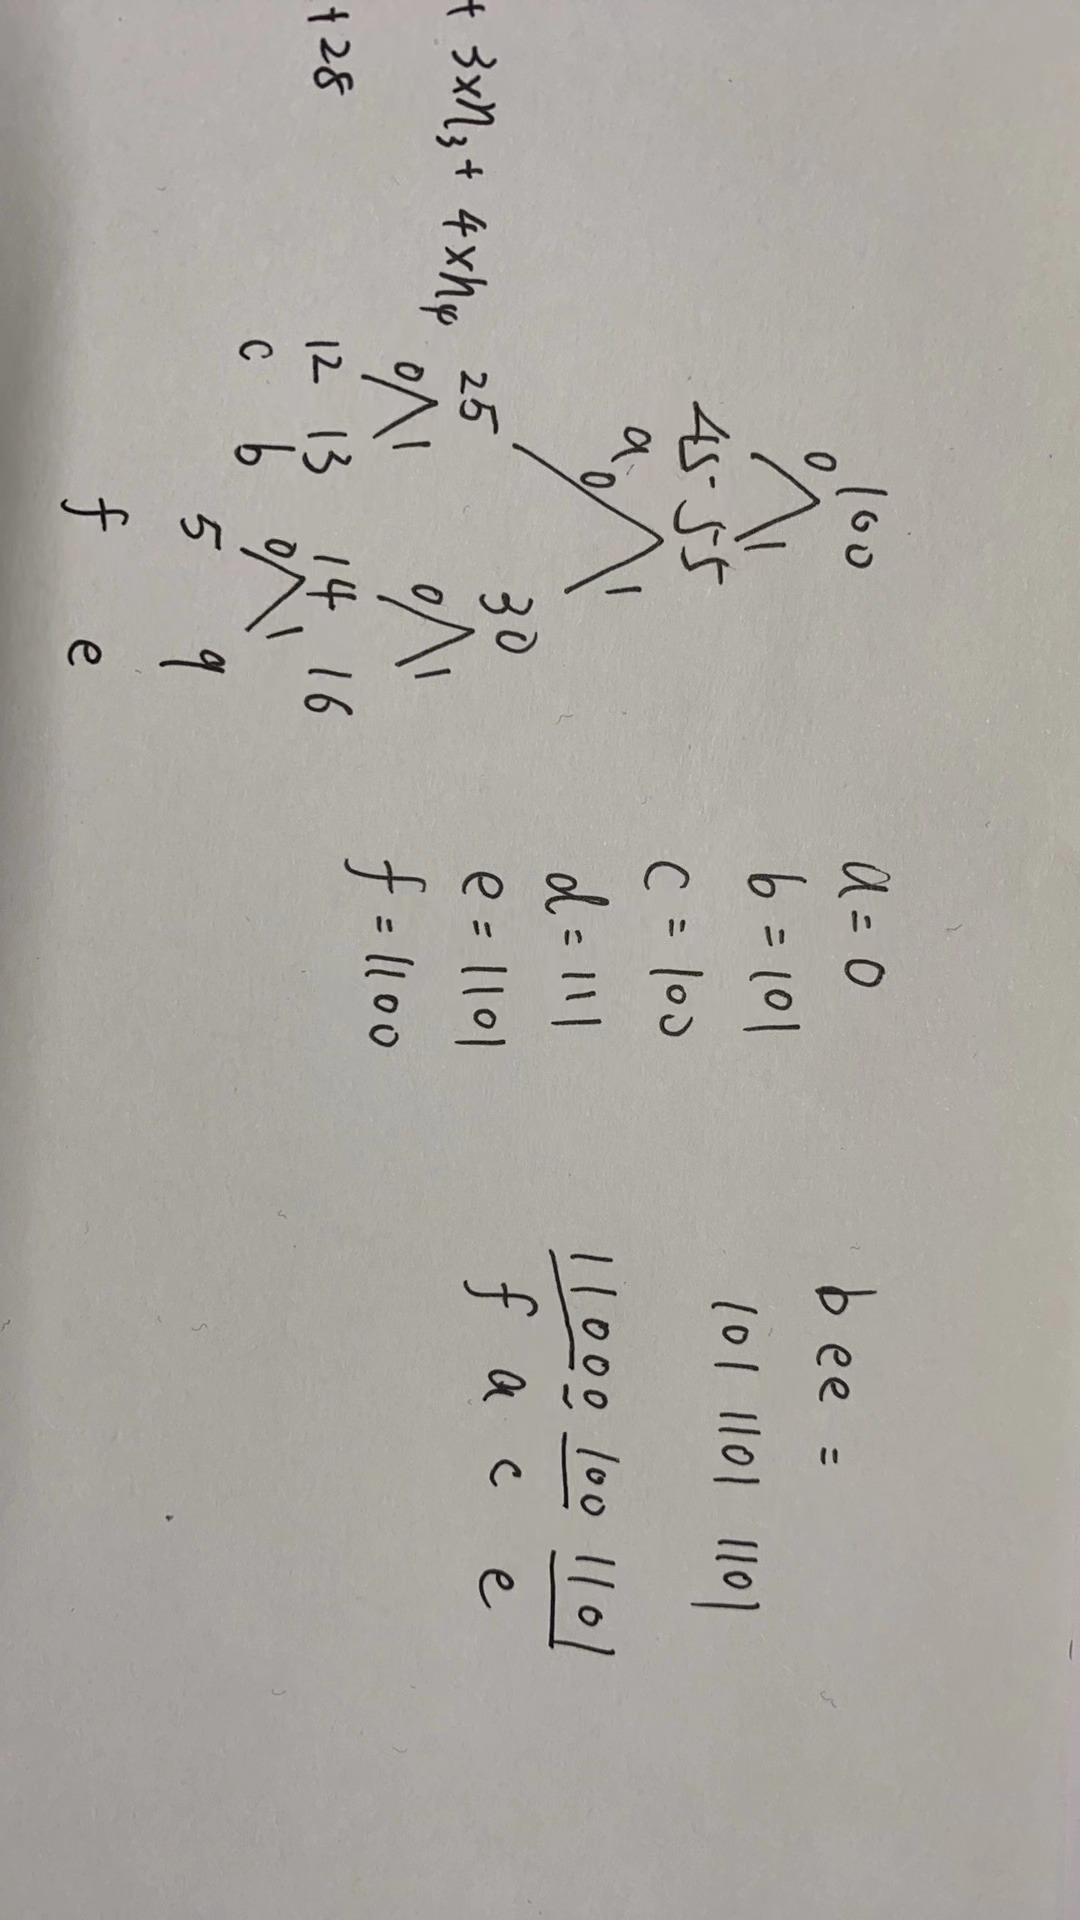 + 3×n₃ + 4×n₄
+ 28
0 100 1
45 55
a 0 1
25 30
0 1 0 1
12 13 14 16
c b 0 1
5 9
f e
a = 0
b = 101
c = 100
d = 111
e = 1101
f = 1100
bee =
101 1101 1101
11000 100 1101
f a c e